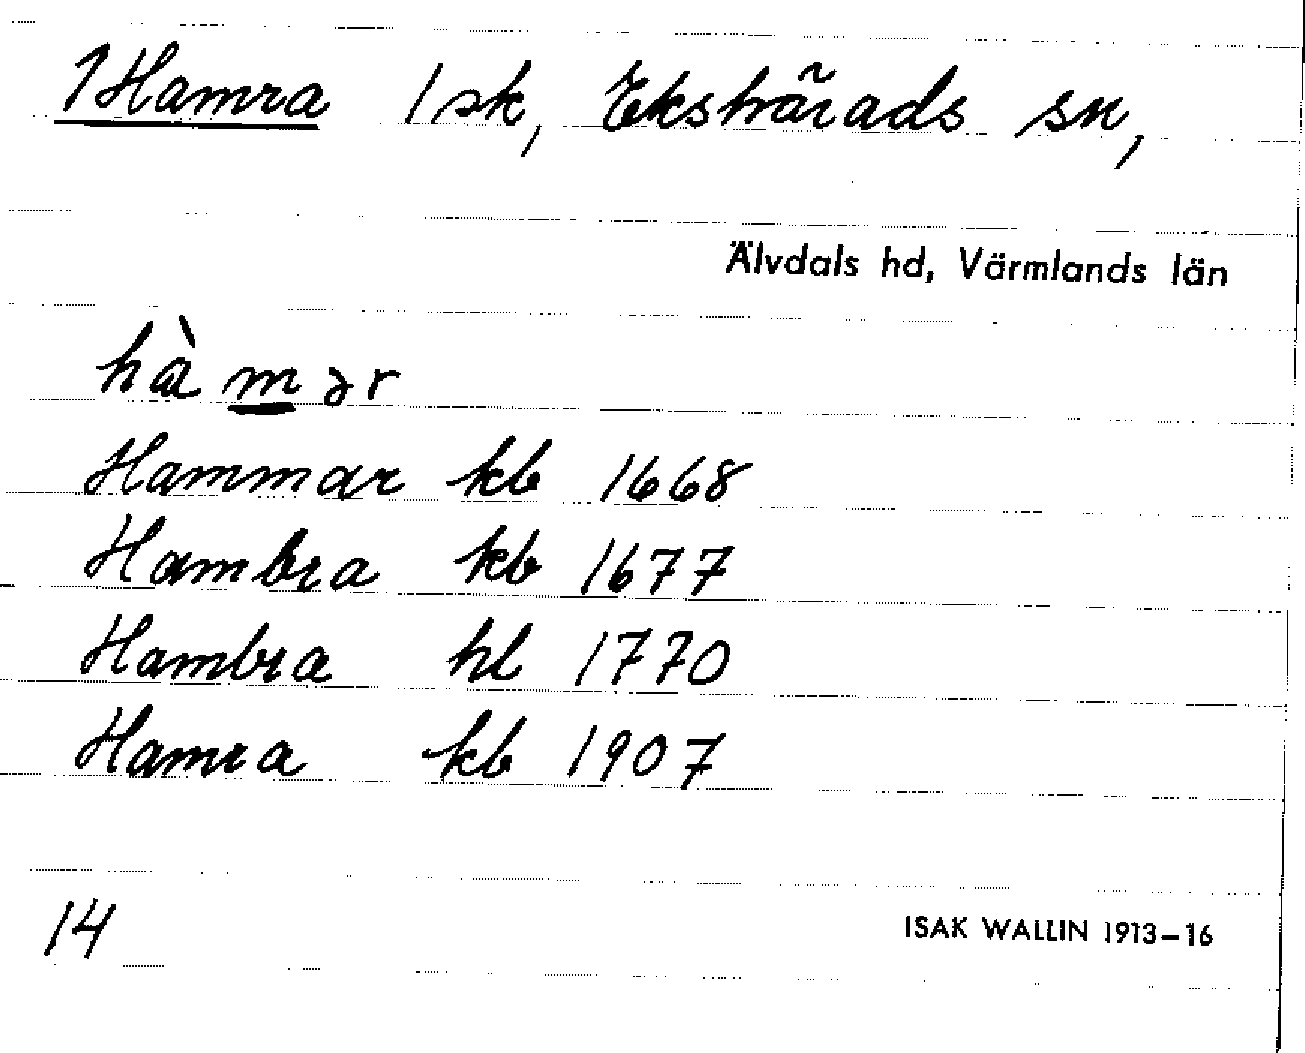 1 Hamra 1 sk, Ekshärads sn,
Älvdals hd, Värmlands län
hàmər
Hammar kb 1668
Hambra kb 1677
Hambra hl 1770
Hamra kb 1907
14
ISAK WALLIN 1913–16